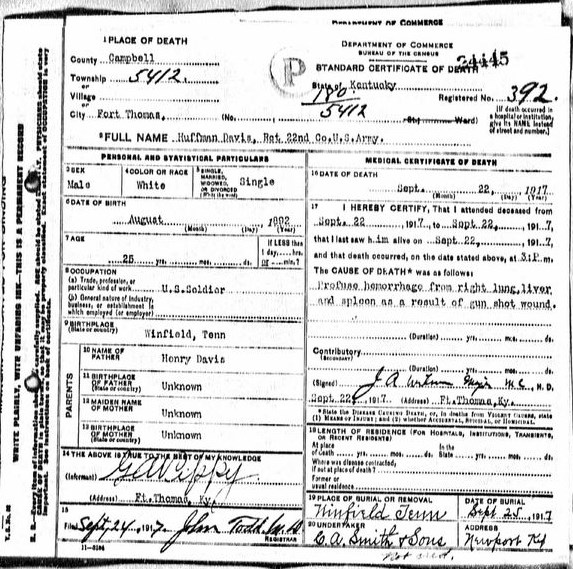 DEPARTMENT OF COMMERCE
1 PLACE OF DEATH
County Campbell
Township 5412
or
Village
or
City Fort Thomas, (No.
DEPARTMENT OF COMMERCE
BUREAU OF THE CENSUS
STANDARD CERTIFICATE OF DEATH
24445
State of Kentucky
Registered No. 392.
180.
5412
St.; Ward)
(If death occurred in
a hospital or institution,
give its NAME instead
of street and number.)
P
2 FULL NAME Huffman Davis, Rct 22nd Co.U.S.Army.
PERSONAL AND STATISTICAL PARTICULARS
3 SEX
Male
4 COLOR OR RACE
White
5 SINGLE,
MARRIED,
WIDOWED,
OR DIVORCED
(Write the word)
Single
6 DATE OF BIRTH
August, 1892
(Month) (Day) (Year)
7 AGE
25 yrs. mos. ds.
If LESS than
1 day, hrs.
or min.?
8 OCCUPATION
(a) Trade, profession, or
particular kind of work U.S.Soldier
(b) General nature of industry,
business, or establishment in
which employed (or employer)
9 BIRTHPLACE
(State or country)
Winfield, Tenn
PARENTS
10 NAME OF
FATHER
Henry Davis
11 BIRTHPLACE
OF FATHER
(State or country)
Unknown
12 MAIDEN NAME
OF MOTHER
Unknown
13 BIRTHPLACE
OF MOTHER
(State or country)
Unknown
14 THE ABOVE IS TRUE TO THE BEST OF MY KNOWLEDGE
(Informant)
(Address) Ft.Thomas, Ky.
15
Filed Sept, 24, 1917. John Todd M.D
REGISTRAR
MEDICAL CERTIFICATE OF DEATH
16 DATE OF DEATH
Sept. 22, 1917
(Month) (Day) (Year)
17 I HEREBY CERTIFY, That I attended deceased from
Sept. 22, 1917, to Sept 22, 1917,
that I last saw him alive on Sept 22, 1917,
and that death occurred, on the date stated above, at 3:P m.
The CAUSE OF DEATH* was as follows:
Profuse hemorrhage from right lung, liver
and spleen as a result of gun shot wound.
(Duration) yrs. mos. ds.
Contributory
(SECONDARY)
(Duration) yrs. mos. ds.
(Signed) M.C., M.D.
Sept 22, 1917. (Address) Ft.Thomas,Ky.
* State the DISEASE CAUSING DEATH, or, in deaths from VIOLENT CAUSES, state
(1) MEANS OF INJURY; and (2) whether ACCIDENTAL, SUICIDAL, or HOMICIDAL.
18 LENGTH OF RESIDENCE (FOR HOSPITALS, INSTITUTIONS, TRANSIENTS,
OR RECENT RESIDENTS)
At place
of death yrs. mos. ds.
In the
State yrs. mos. ds.
Where was disease contracted,
if not at place of death?
Former or
usual residence
19 PLACE OF BURIAL OR REMOVAL
Winfield Tenn
DATE OF BURIAL
Sept 25, 1917
20 UNDERTAKER
C.A. Smith & Sons
ADDRESS
Newport Ky
WRITE PLAINLY, WITH UNFADING INK—THIS IS A PERMANENT RECORD